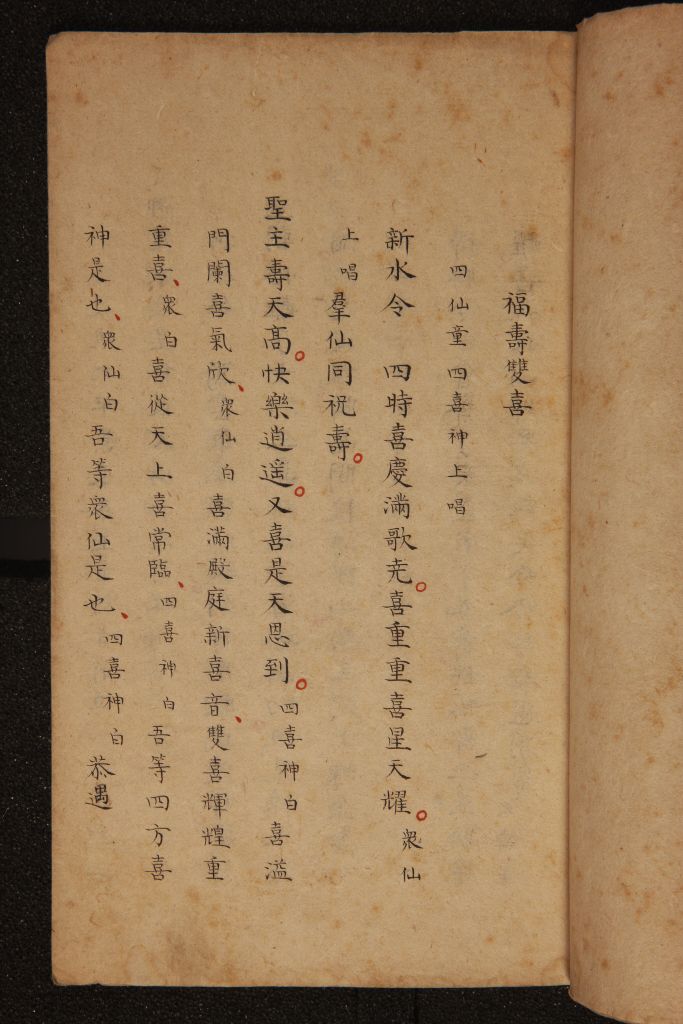 福壽雙喜
四仙童四喜神上唱
新水令　四時喜慶滿歌尭。喜重重喜星天耀。衆仙
上唱羣仙同祝壽。
聖主壽天髙。快樂逍遥。又喜是天恩到。四喜神白喜溢
門闌喜氣欣、衆仙白喜滿殿庭新喜音、雙喜輝煌重
重喜、衆白喜從天上喜常臨、四喜神白吾等四方喜
神是也、衆仙白吾等衆仙是也、四喜神白恭遇